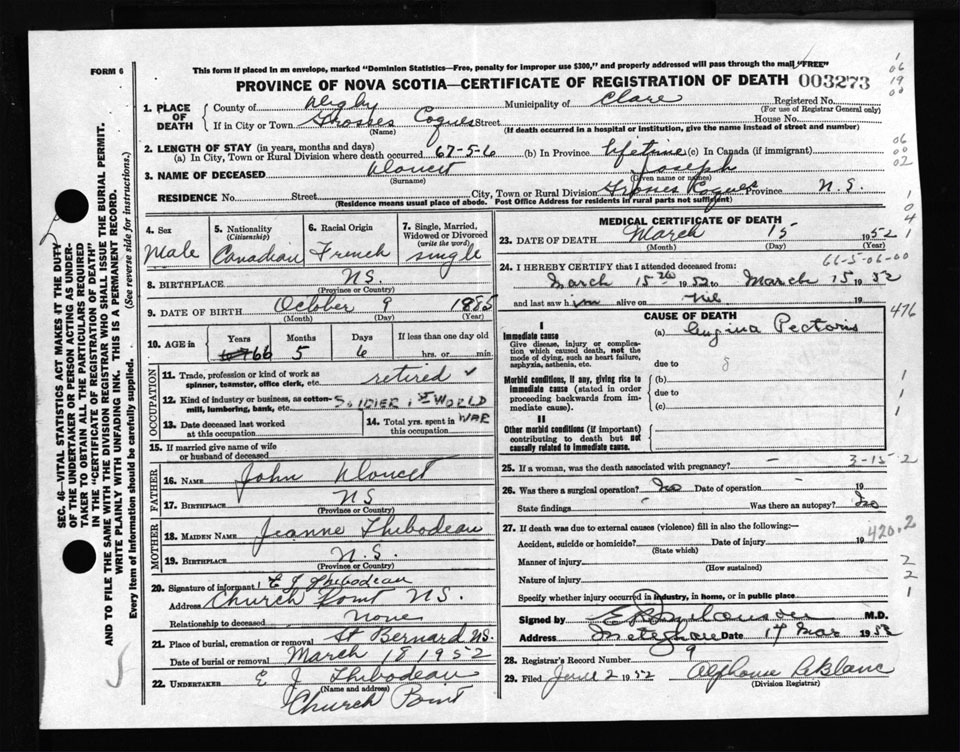 This form if placed in an envelope, marked "Dominion Statistics—Free, penalty for improper use $300," and properly addressed will pass through the mail "FREE"
FORM 6
PROVINCE OF NOVA SCOTIA—CERTIFICATE OF REGISTRATION OF DEATH 003273
1. PLACE OF DEATH
County of Digby Municipality of Clare Registered No.
(For use of Registrar General only)
If in City or Town Grosses Coques Street House No.
(Name) (If death occurred in a hospital or institution, give the name instead of street and number)
2. LENGTH OF STAY (in years, months and days)
(a) In City, Town or Rural Division where death occurred 67-5-6 (b) In Province lifetime (c) In Canada (if immigrant)
3. NAME OF DECEASED Doucet Joseph
(Surname) (Given name or names)
RESIDENCE No. Street City, Town or Rural Division Grosses Coques Province N.S.
(Residence means usual place of abode. Post Office Address for residents in rural parts not sufficient)
4. Sex Male
5. Nationality (Citizenship) Canadian
6. Racial Origin French
7. Single, Married, Widowed or Divorced (write the word) single
8. BIRTHPLACE N.S.
(Province or Country)
9. DATE OF BIRTH October 9 1885
(Month) (Day) (Year)
10. AGE in Years Months Days If less than one day old
66 5 6 hrs. or min.
OCCUPATION
11. Trade, profession or kind of work as spinner, teamster, office clerk, etc. retired
12. Kind of industry or business, as cotton-mill, lumbering, bank, etc. SOLDIER 1ST WORLD WAR
13. Date deceased last worked at this occupation
14. Total yrs. spent in this occupation
15. If married give name of wife or husband of deceased
FATHER
16. NAME John Doucet
17. BIRTHPLACE NS
(Province or Country)
MOTHER
18. MAIDEN NAME Jeanne Thibodeau
19. BIRTHPLACE N.S.
(Province or Country)
20. Signature of informant E J Thibodeau
Address Church Point N.S.
Relationship to deceased None
21. Place of burial, cremation or removal St Bernard N.S.
Date of burial or removal March 18 1952
22. UNDERTAKER E J Thibodeau
(Name and address)
Church Point
MEDICAL CERTIFICATE OF DEATH
23. DATE OF DEATH March 15 1952
(Month) (Day) (Year)
66-5-06-00
24. I HEREBY CERTIFY that I attended deceased from:
March 15th 1952 to March 15 1952
and last saw him alive on nil 19
CAUSE OF DEATH
I
Immediate cause
Give disease, injury or complication which caused death, not the mode of dying, such as heart failure, asphyxia, asthenia, etc.
(a) Angina Pectoris
due to
Morbid conditions, if any, giving rise to immediate cause (stated in order proceeding backwards from immediate cause).
(b)
due to
(c)
II
Other morbid conditions (if important) contributing to death but not causally related to immediate cause.
476
25. If a woman, was the death associated with pregnancy? - 3-15-2
26. Was there a surgical operation? No Date of operation - 19
State findings Was there an autopsy? No
27. If death was due to external causes (violence) fill in also the following:— 420.2
Accident, suicide or homicide? Date of injury 19
(State which)
Manner of injury
(How sustained)
Nature of injury
Specify whether injury occurred in industry, in home, or in public place
Signed by M.D.
Address Date 17 Mar 1952
28. Registrar's Record Number 9
29. Filed June 2 1952 Alphonse LeBlanc
(Division Registrar)
SEC. 46—VITAL STATISTICS ACT MAKES IT THE DUTY
OF THE UNDERTAKER OR PERSON ACTING AS UNDERTAKER TO OBTAIN ALL THE PARTICULARS REQUIRED
IN THE "CERTIFICATE OF REGISTRATION OF DEATH"
AND TO FILE THE SAME WITH THE DIVISION REGISTRAR WHO SHALL ISSUE THE BURIAL PERMIT.
WRITE PLAINLY WITH UNFADING INK. THIS IS A PERMANENT RECORD.
Every item of information should be carefully supplied. (See reverse side for instructions.)